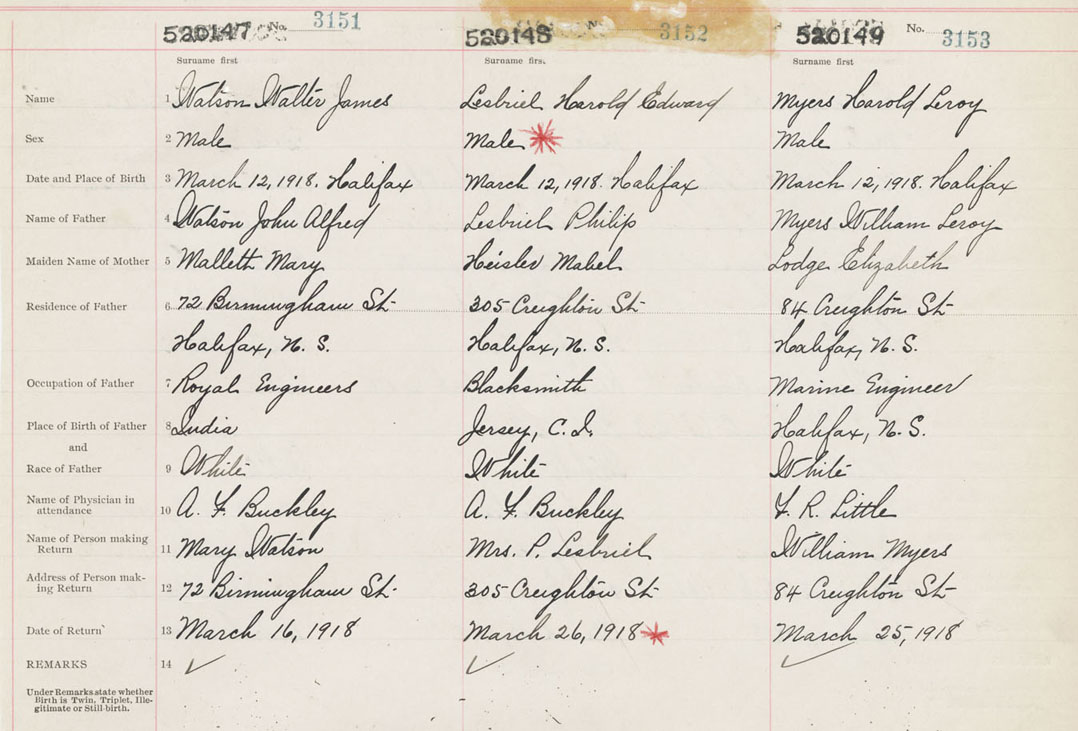 520147 No. 3151 520148 No. 3152 520149 No. 3153
Surname first Surname first Surname first
Name 1 Watson Walter James Lesbriel Harold Edward Myers Harold Leroy
Sex 2 Male Male Male
Date and Place of Birth 3 March 12, 1918. Halifax March 12, 1918. Halifax March 12, 1918. Halifax
Name of Father 4 Watson John Alfred Lesbriel Philip Myers William Leroy
Maiden Name of Mother 5 Mallett Mary Heisler Mabel Lodge Elizabeth
Residence of Father 6 72 Birmingham St 305 Creighton St 84 Creighton St
Halifax, N. S. Halifax, N. S. Halifax, N. S.
Occupation of Father 7 Royal Engineers Blacksmith Marine Engineer
Place of Birth of Father 8 India Jersey, C. I. Halifax, N. S.
and
Race of Father 9 White White White
Name of Physician in
attendance 10 A. F. Buckley A. F. Buckley F. R. Little
Name of Person making
Return 11 Mary Watson Mrs. P. Lesbriel William Myers
Address of Person mak-
ing Return 12 72 Birmingham St. 305 Creighton St 84 Creighton St
Date of Return 13 March 16, 1918 March 26, 1918 March 25, 1918
REMARKS 14 ✓ ✓ ✓
Under Remarks state whether
Birth is Twin, Triplet, Ille-
gitimate or Still-birth.